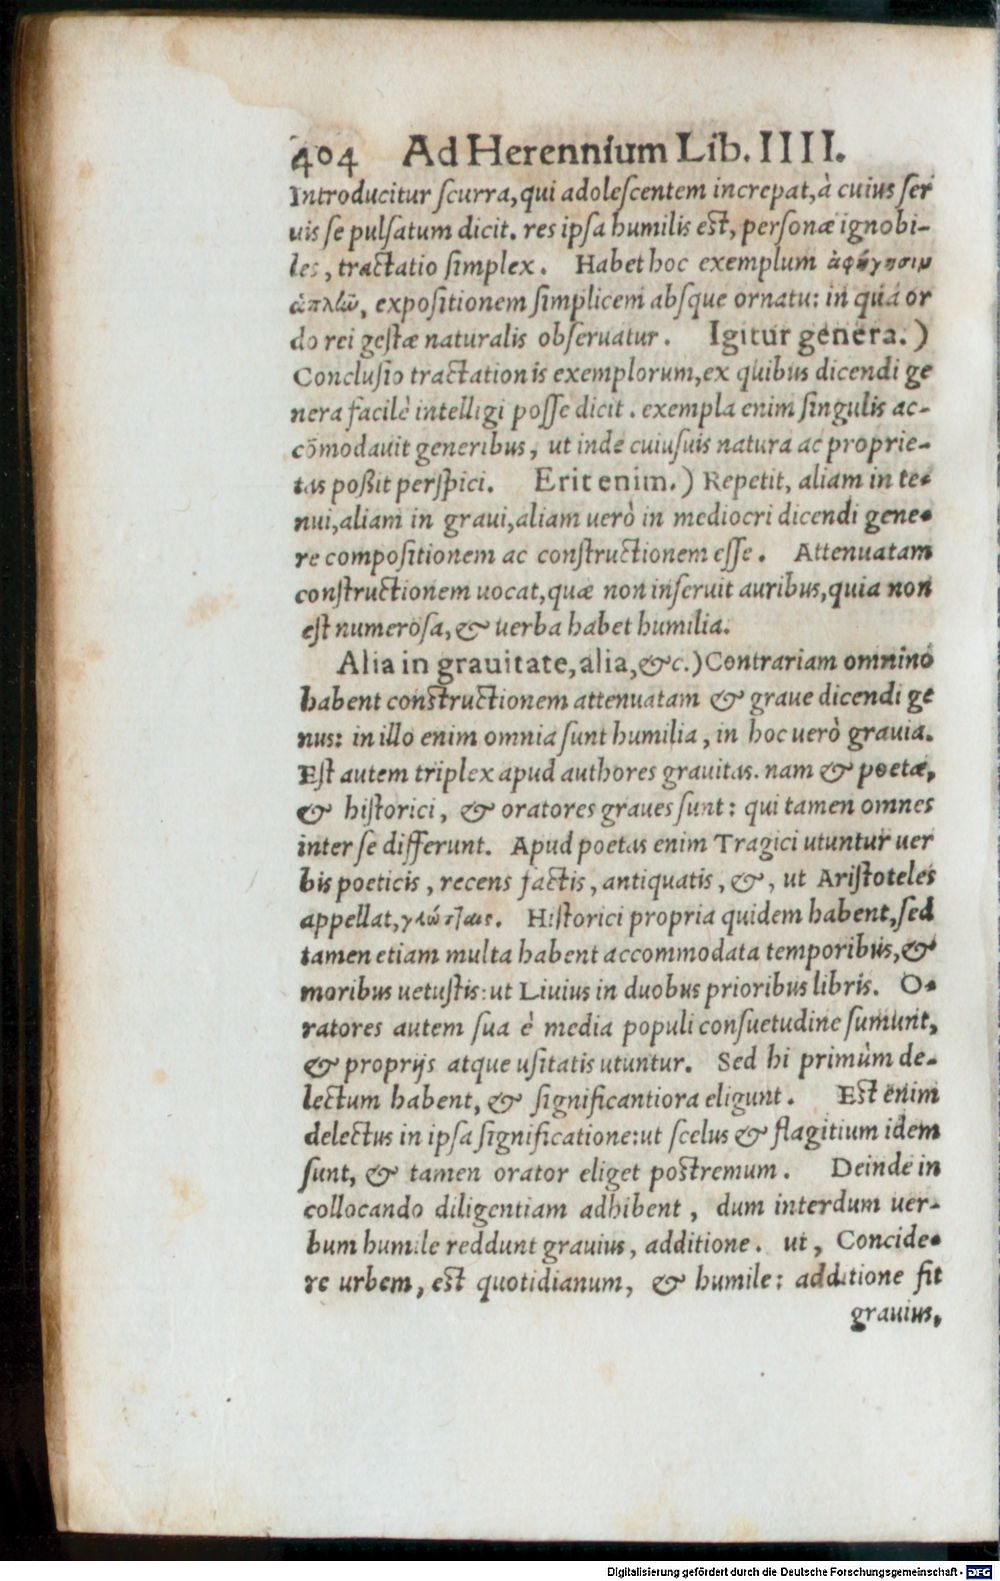 404 Ad Herennium Lib. IIII.
Introducitur scurra, qui adolescentem increpat, à cuius ser
uis se pulsatum dicit. res ipsa humilis est, personæ ignobi-
les, tractatio simplex. Habet hoc exemplum ἀφήγησιμ
ἁπλῶ, expositionem simplicem absque ornatu: in qua or
do rei gestæ naturalis obseruatur. Igitur genera.)
Conclusio tractationis exemplorum, ex quibus dicendi ge
nera facilè intelligi posse dicit. exempla enim singulis ac-
cõmodauit generibus, ut inde cuiusuis natura ac proprie-
tas poßit perspici. Erit enim.) Repetit, aliam in te-
nui, aliam in graui, aliam uerò in mediocri dicendi gene-
re compositionem ac constructionem esse. Attenuatam
constructionem uocat, quæ non inseruit auribus, quia non
est numerosa, & uerba habet humilia.
Alia in grauitate, alia, &c.) Contrariam omnino
habent constructionem attenuatam & graue dicendi ge
nus: in illo enim omnia sunt humilia, in hoc uerò grauia.
Est autem triplex apud authores grauitas. nam & poetæ,
& historici, & oratores graues sunt: qui tamen omnes
inter se differunt. Apud poetas enim Tragici utuntur uer
bis poeticis, recens factis, antiquatis, &, ut Aristoteles
appellat, γλώτ]αις. Historici propria quidem habent, sed
tamen etiam multa habent accommodata temporibus, &
moribus uetustis: ut Liuius in duobus prioribus libris. O-
ratores autem sua è media populi consuetudine sumunt,
& proprijs atque usitatis utuntur. Sed hi primùm de-
lectum habent, & significantiora eligunt. Est enim
delectus in ipsa significatione: ut scelus & flagitium idem
sunt, & tamen orator eliget postremum. Deinde in
collocando diligentiam adhibent, dum interdum uer-
bum humile reddunt grauius, additione. ut, Concide-
re urbem, est quotidianum, & humile: additione fit
grauius,
Digitalisierung gefördert durch die Deutsche Forschungsgemeinschaft - DFG